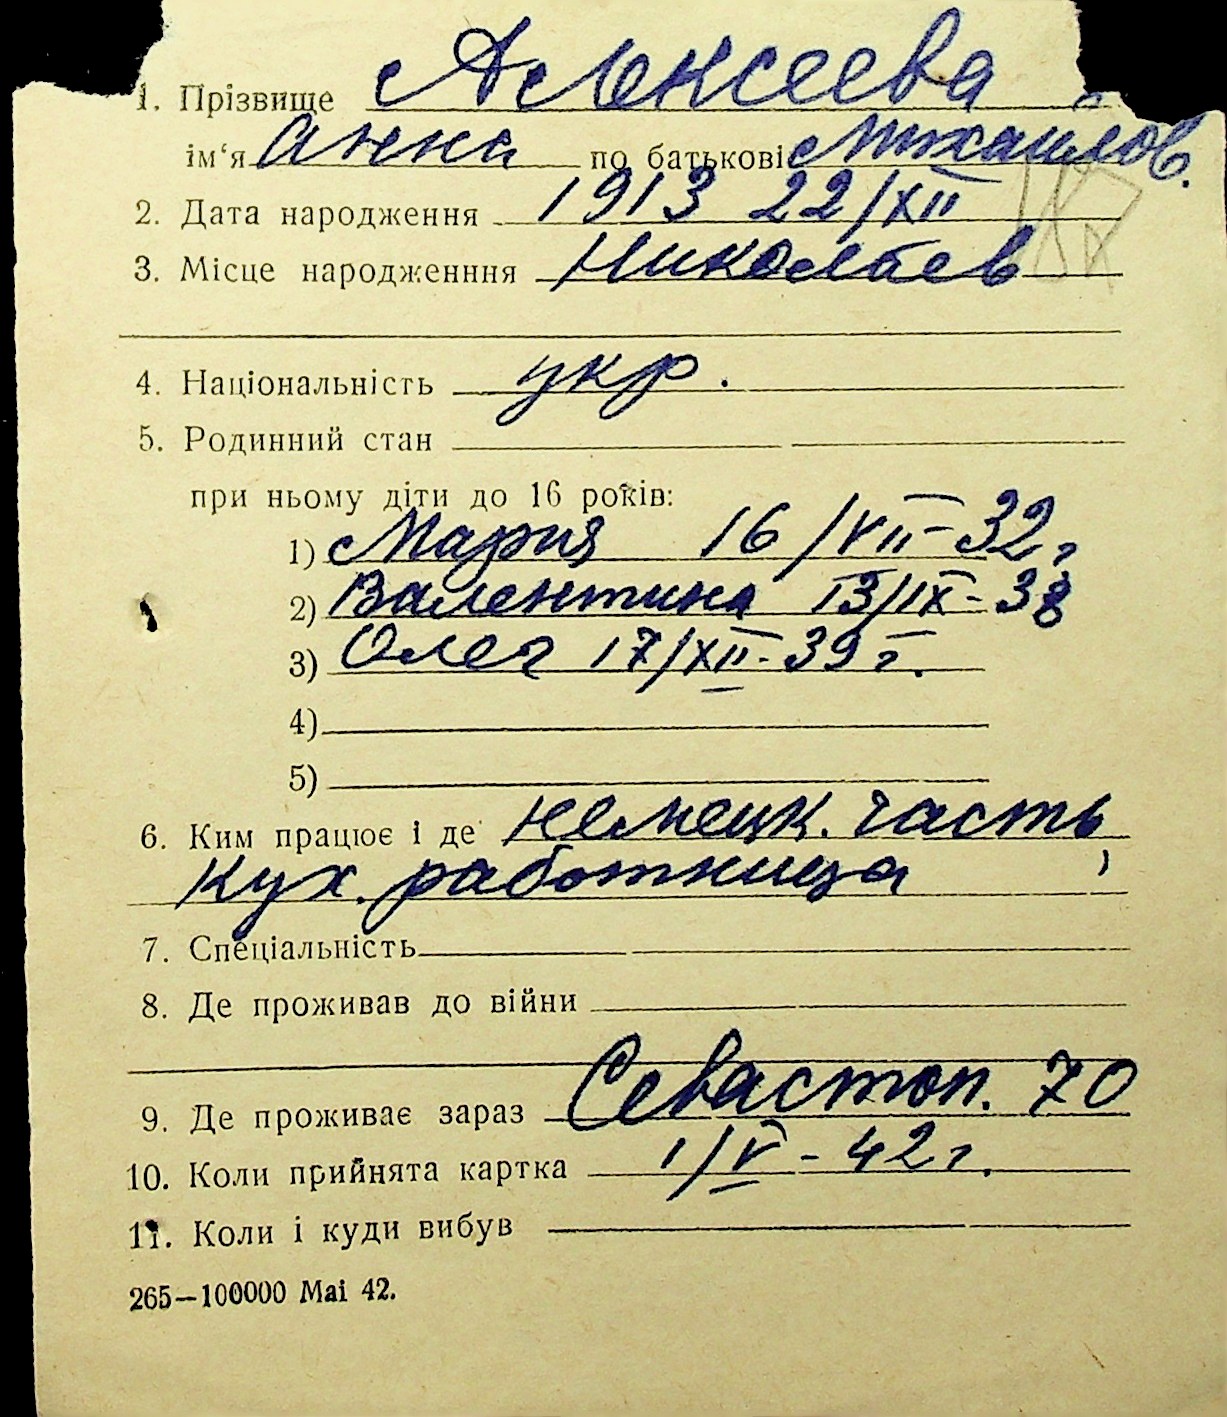 1. Прізвище Алексеева
ім‘я Анна по батькові Михайлов.
2. Дата народження 1913 22/XII
3. Місце народженння Николаев
4. Національність укр.
5. Родинний стан
при ньому діти до 16 років:
1) Мария 16/VII-32г
2) Валентина 13/IX-38
3) Олег 17/XII-39г.
4)
5)
6. Ким працює і де немецк. часть,
кух. работница
7. Спеціальність
8. Де проживав до війни
9. Де проживає зараз Севастоп. 70
10. Коли прийнята картка 1/V-42г.
11. Коли і куди вибув
265—100000 Mai 42.